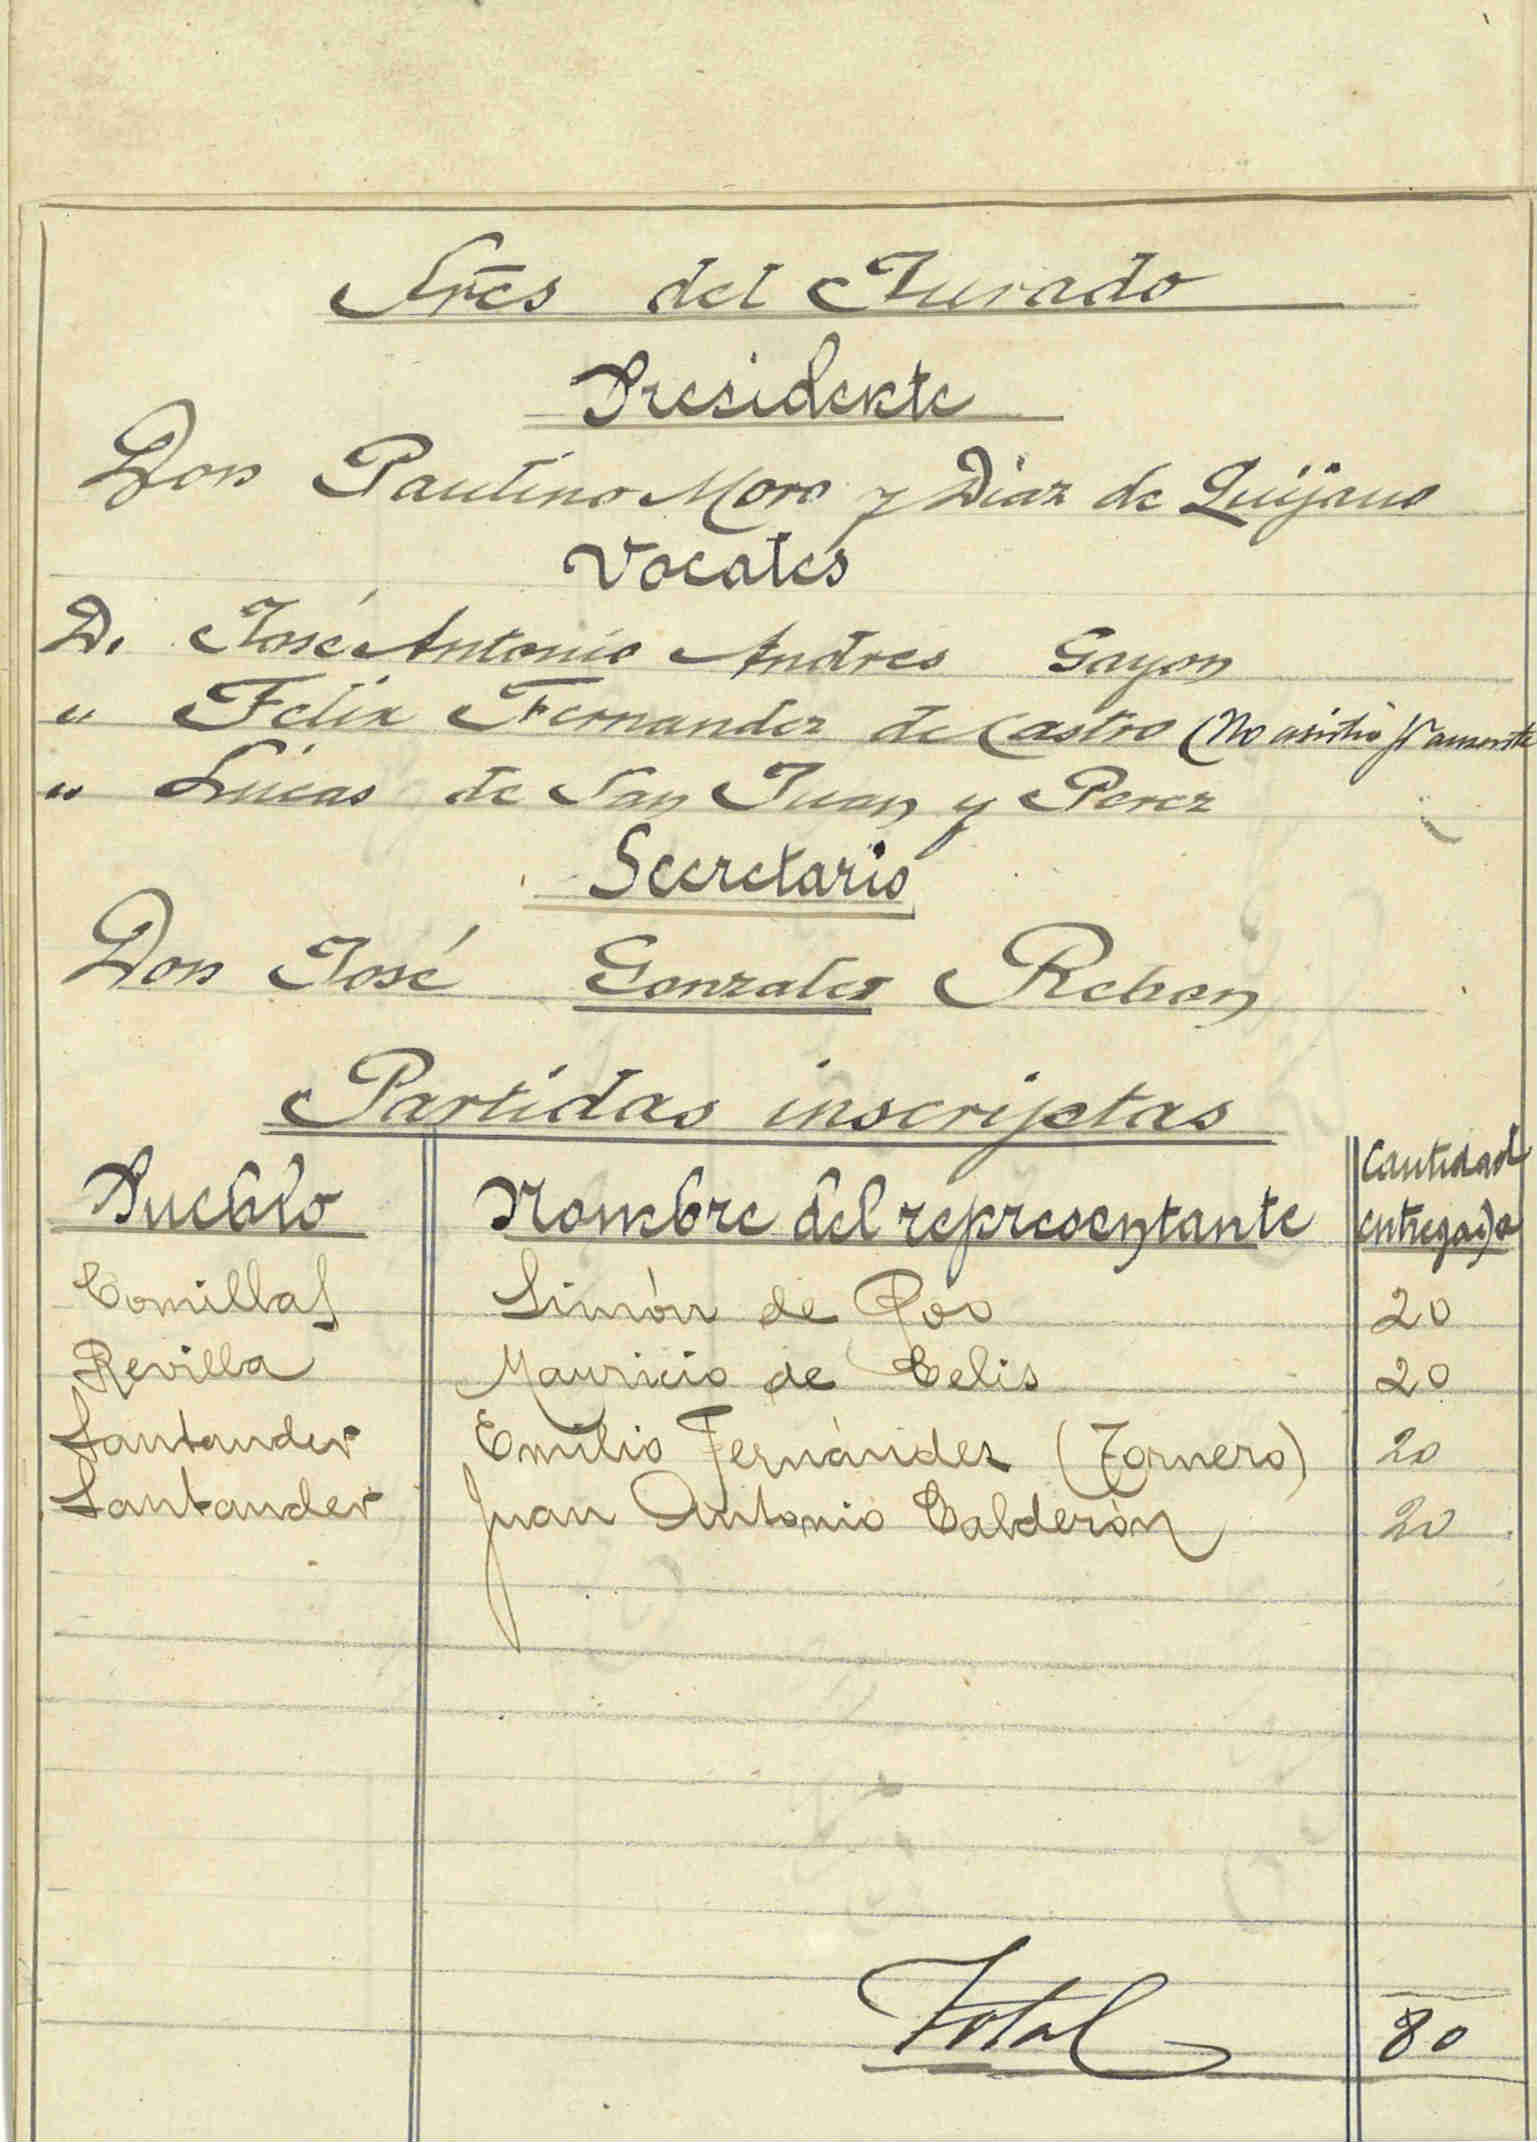 Sres del Jurado
Presidente
Don Paulino Moro y Diaz de Quijano
Vocales
D. José Antonio Andres Gayon
" Felix Fernandez de Castro (No asistió pr ausente
" Lucas de San Juan y Perez
Secretario
Don José Gonzalez Rebon
Partidas inscriptas
Pueblo Nombre del representante Cantidad entregada
Comillas Simón de Poo 20
Revilla Mauricio de Celis 20
Santander Emilio Fernández (Tornero) 20
Santander Juan Antonio Calderón 20
Total 80